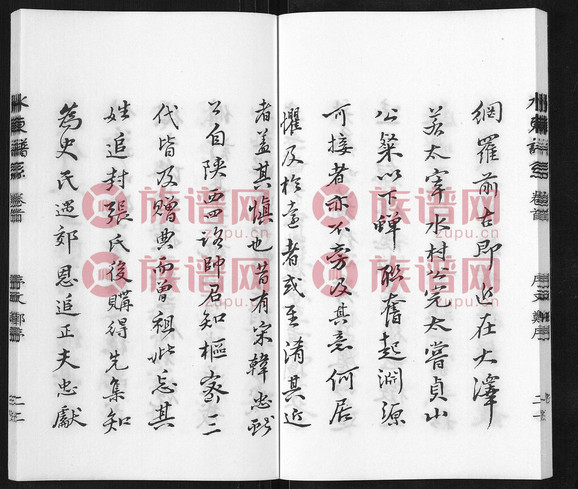 網羅前古即近在大澤
若太宰水村公先太嘗貞山
公粲以下蟬聯奮起淵源
可接者亦不旁及其意何居
懼及於遠者或至淆其近
者蓋其慎也昔有宋韓忠獻
公自陝西四路帥召知樞密三
代皆及贈典而曾祖妣忘其
姓追封張氏後購得先集知
為史氏遇郊恩追正夫忠獻
水東譜系 卷首
族谱网
zupu.cn